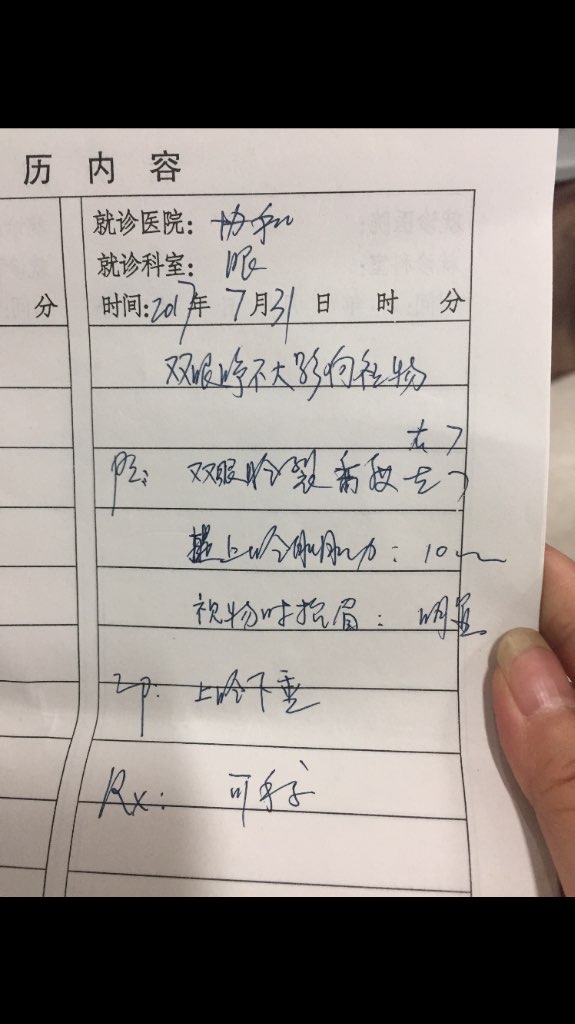 历内容
就诊医院：协和
就诊科室：眼
分
时间：2017年7月31日 时 分
双眼睁不大影响视物
右7
双眼睑裂高度左7
提上睑肌肌力：10mm
视物时抬眉：明显
印：上睑下垂
Rx：可手术